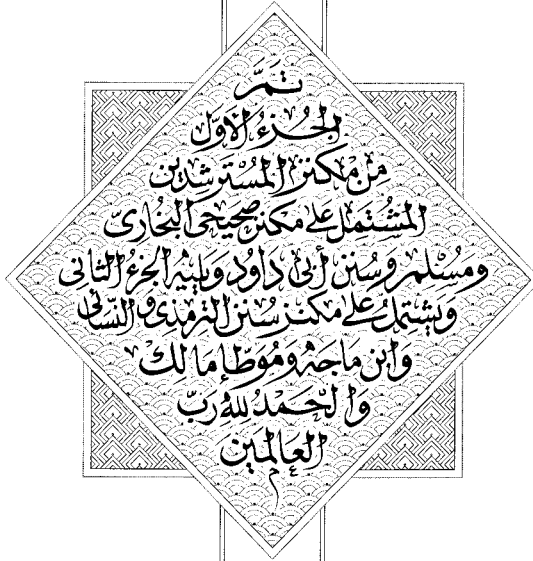 تَمَّ
الجُزْءُ الأوَّل
مِنْ مَكْنَزِ المُسْتَرشِدِين
المُشْتَمِل عَلَى مَكْنَز صَحِيحَى البُخَارِىّ
وَمُسْلِم وَسُنَن أَبِى دَاوُد وَيَلِيهِ الجُزءُ الثَّانِى
وَيَشْتَمِلُ عَلَى مَكْنَز سُنَن التِّرمِذِى وَالنَّسَائِى
وَابْن مَاجَهْ وَمُوَطَّإِ مَالِكْ
وَالحَمْدُ لِلَّهِ رَبِّ
العَالَمِين